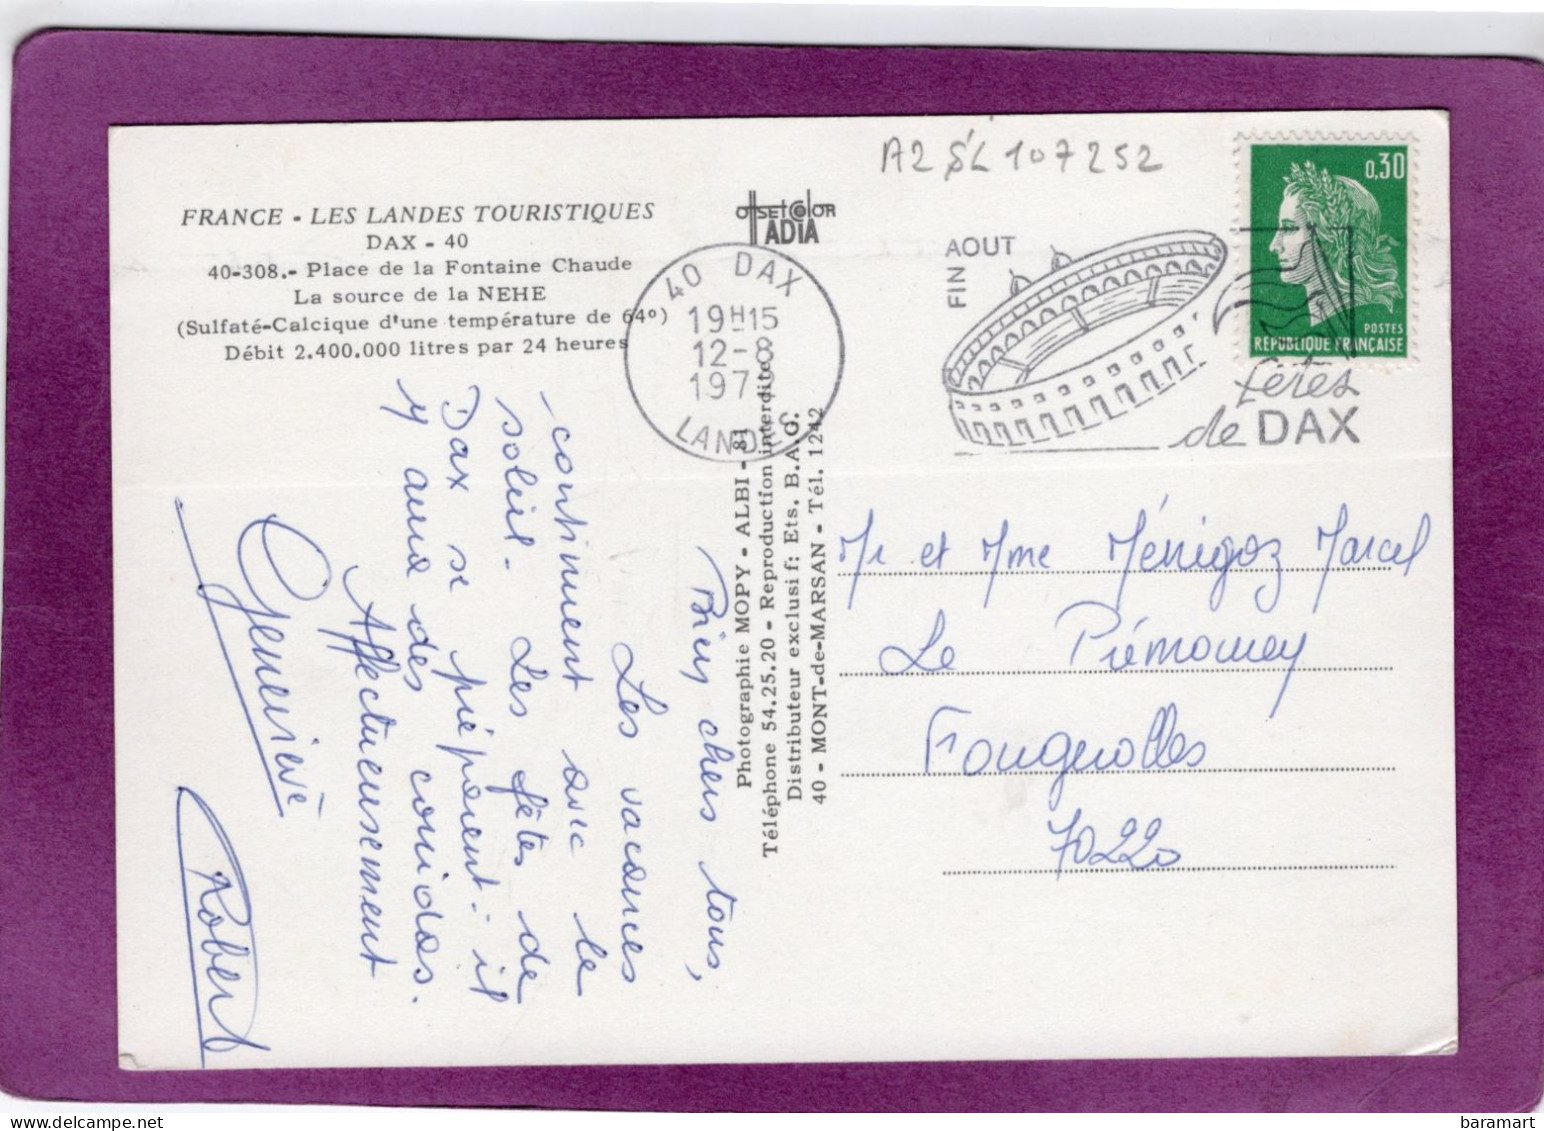 A2 SL 107252
FRANCE - LES LANDES TOURISTIQUES
DAX - 40
40-308.- Place de la Fontaine Chaude
La source de la NEHE
(Sulfaté-Calcique d'une température de 64º)
Débit 2.400.000 litres par 24 heures
OffsetColor
TADIA
40 DAX
19H15
12-8
197
LANDES
FIN
AOUT
fêtes
de DAX
0,30
POSTES
REPUBLIQUE FRANÇAISE
Photographie MOPY - ALBI - 81
Téléphone 54.25.20 - Reproduction interdite
Distributeur exclusif: Ets. B.A.G.
40 - MONT-de-MARSAN - Tél. 1242
Bien chers tous,
Les vacances
continuent avec le
soleil. Les fêtes de
Dax se préparent: il
y aura des corridas.
Affectueusement
Geneviève
Robert
Mr et Mme Ménigoz Marcel
Le Prémourey
Fougerolles
70220
baramart